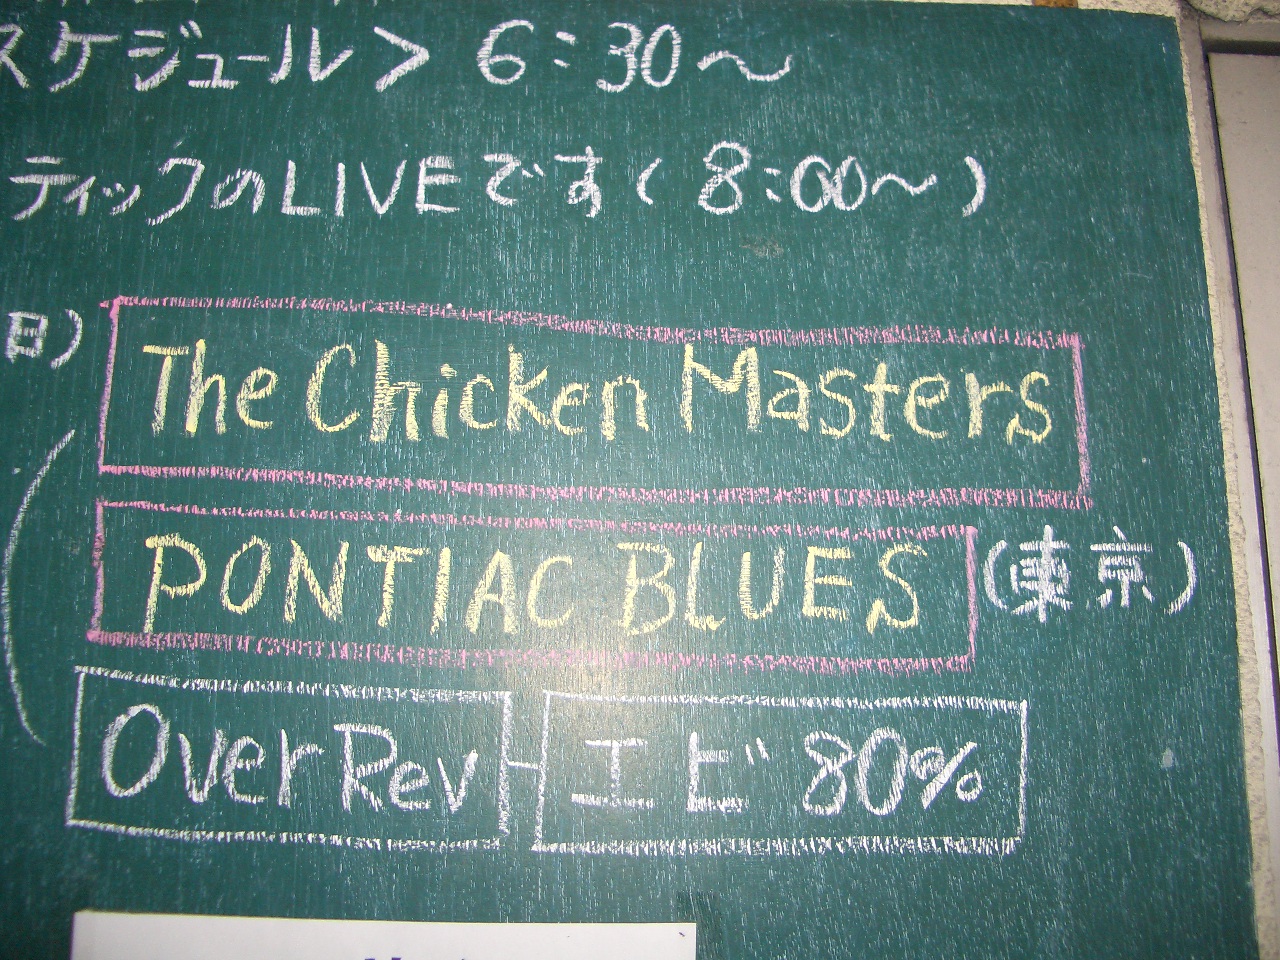 スケジュール> 6:30～
ティックのLIVEです( 8:00～)
日) The Chicken Masters
PONTIAC BLUES (東京)
Over Rev エビ 80%